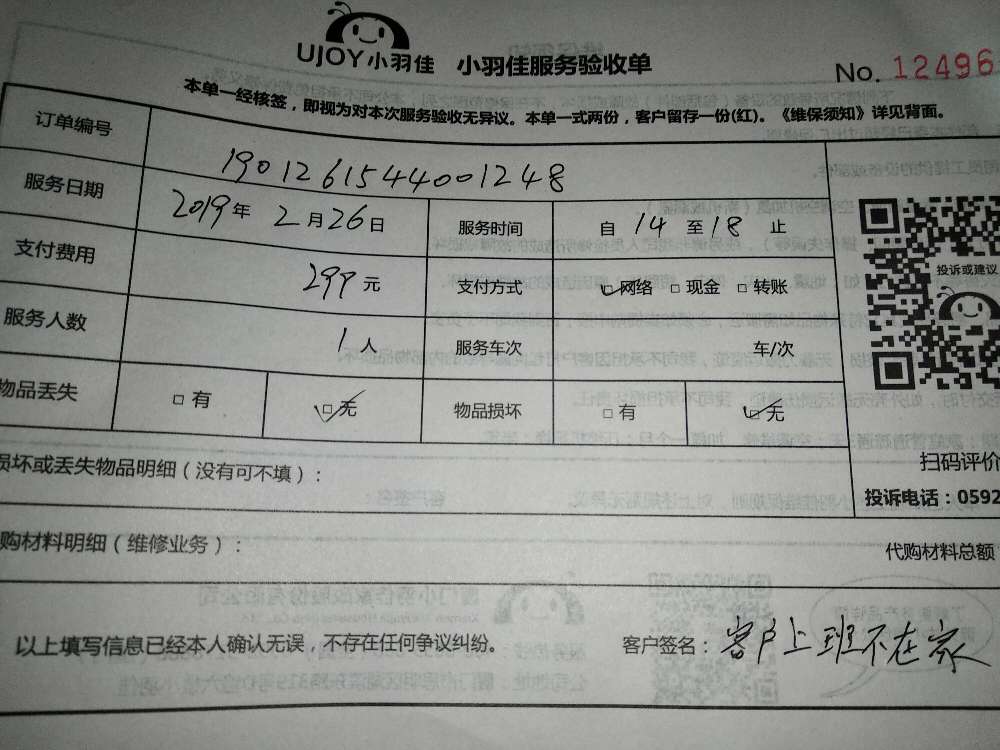 UJOY小羽佳 小羽佳服务验收单
No. 12496
本单一经核签，即视为对本次服务验收无异议。本单一式两份，客户留存一份(红)。《维保须知》详见背面。
订单编号 1901261544001248
服务日期 2019年 2月26日 服务时间 自 14 至 18 止
支付费用 299元 支付方式 网络 □ 现金 □ 转账
服务人数 1人 服务车次 车/次
物品丢失 □ 有 □ 无 物品损坏 □ 有 □ 无
投诉或建议
损坏或丢失物品明细（没有可不填）：
扫码评价
投诉电话：0592
购材料明细（维修业务）：
代购材料总额
以上填写信息已经本人确认无误，不存在任何争议纠纷。 客户签名：客户上班不在家